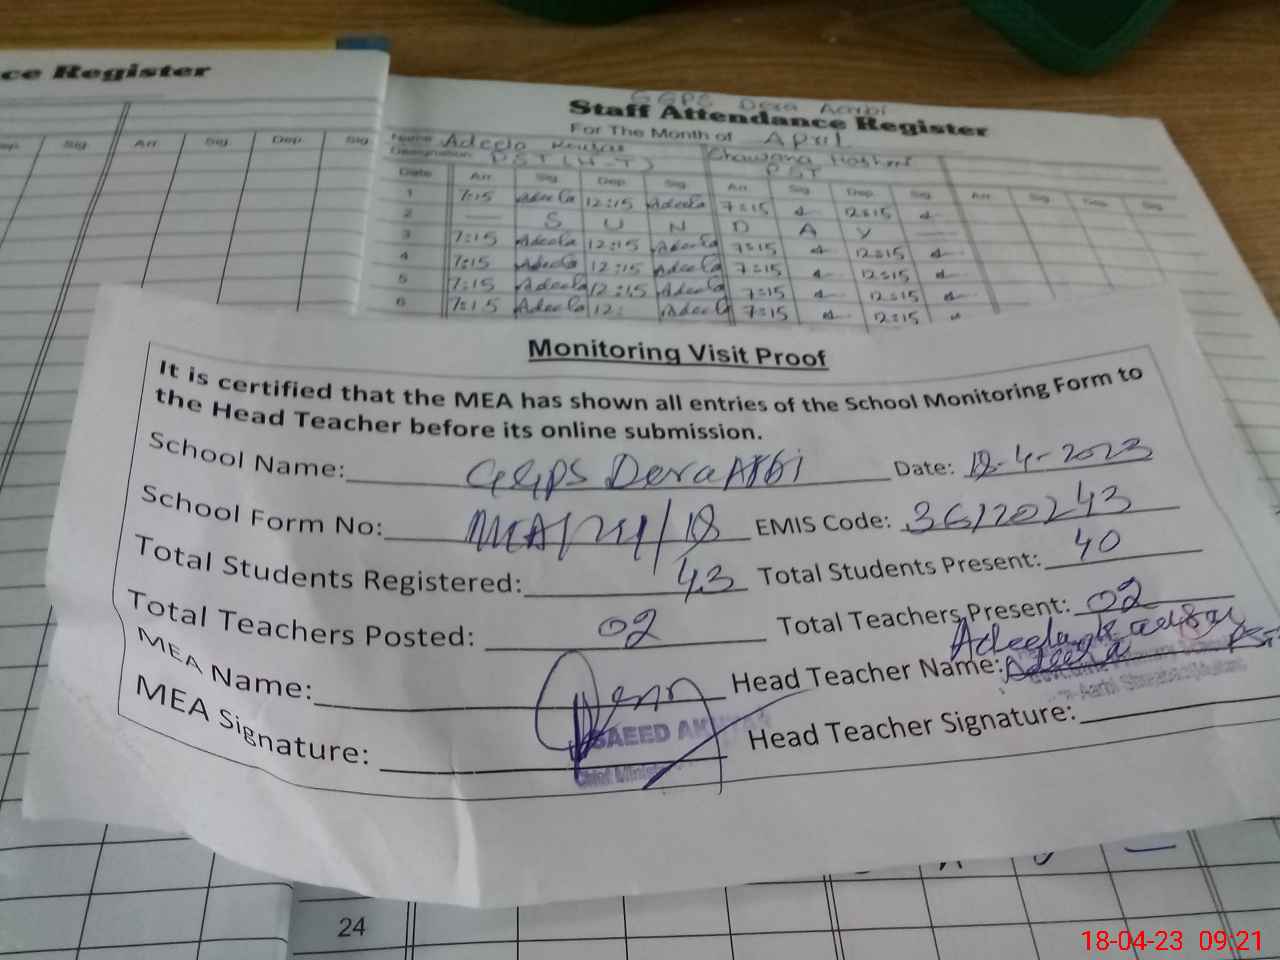 ce Register
ep. Sig Arr Sig Dep Sig
GGPS Dera Aarbi
Staff Attendance Register
For The Month of April
Name Adeela Kousar
Designation PST (H-T) PST
Date Arr Sig Dep Sig Arr Sig Dep Sig Arr Sig Dep Sig
1 7:15 Adeela 12:15 Adeela 7:15 12:15
2 S U N D A Y
3 7:15 Adeela 12:15 Adeela 7:15 12:15
4 7:15 Adeela 12:15 Adeela 7:15 12:15
5 7:15 Adeela 12:15 Adeela 7:15 12:15
6 7:15 Adeela 12: Adeela 7:15 12:15
Monitoring Visit Proof
It is certified that the MEA has shown all entries of the School Monitoring Form to
the Head Teacher before its online submission.
School Name: GGPS Dera Arbi Date: 18-4-2023
School Form No: MEA/M/18 EMIS Code: 36120243
Total Students Registered: 43 Total Students Present: 40
Total Teachers Posted: 02 Total Teachers Present: 02
MEA Name: Head Teacher Name: Adeela Kausar PST
MEA Signature: SAEED Head Teacher Signature:
Chief Minis
24
18-04-23 09:21